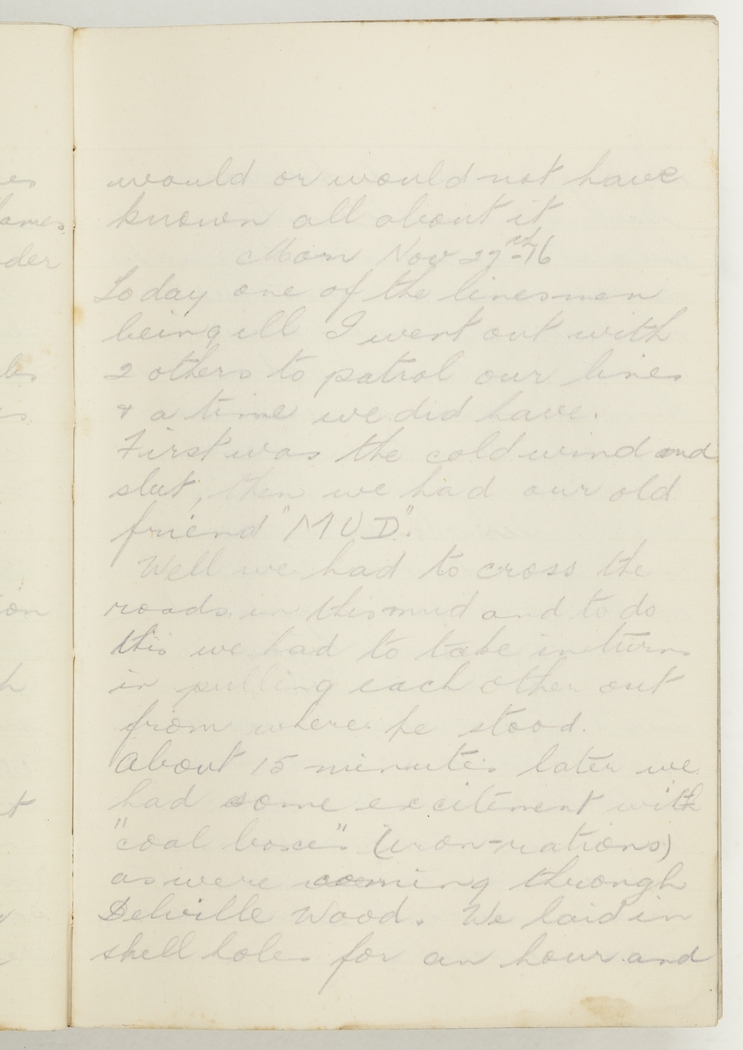 would or would not have
known all about it
Mon Nov 27th-16
Today one of the linesmen
being ill I went out with
2 others to patrol our lines
& a time we did have.
First was the cold wind and
slut, then we had our old
friend "MUD".
Well we had to cross the
roads in this mud and to do
this we had to take in turns
in pulling each other out
from where he stood.
About 15 minutes later we
had some excitement with
"coal boxes" (iron-rations)
as were coming through
Delville Wood. We laid in
shell holes for an hour and